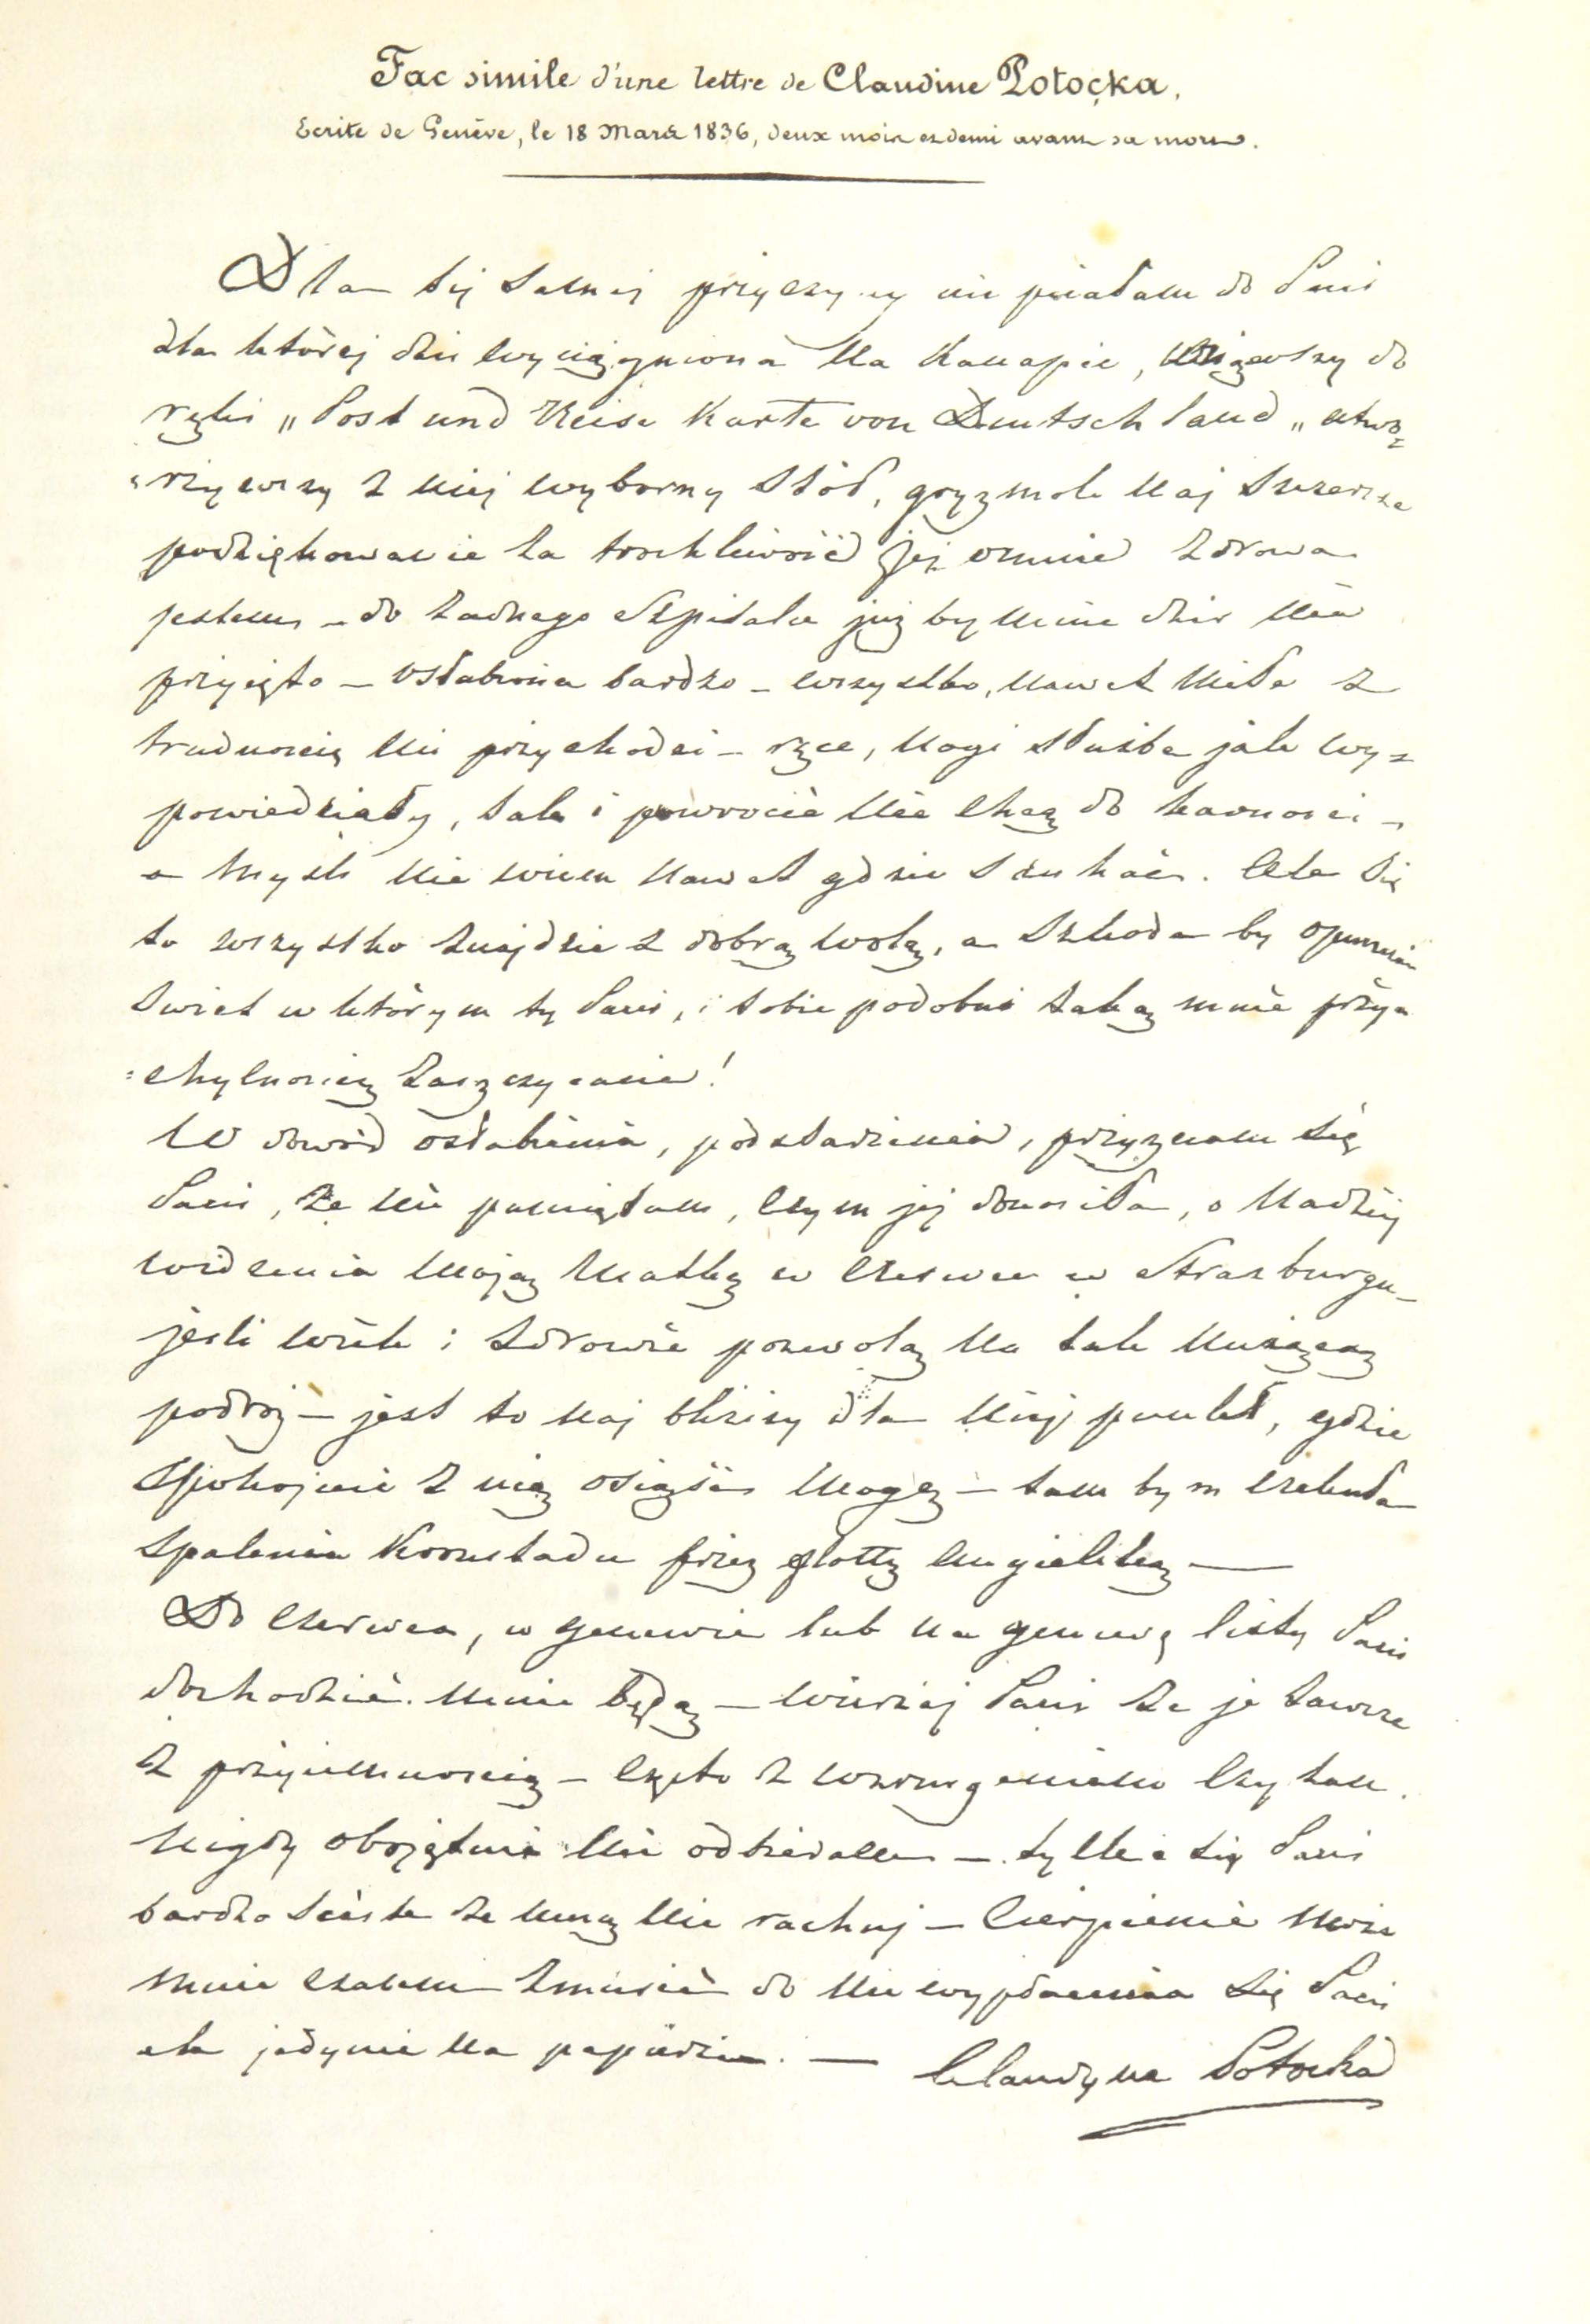 Fac simile d'une lettre de Claudine Potoçka.
Ecrite de Genêve, le 18 Mars 1836, deux mois et demi avant sa mort.
Dla tej samej przyczyny nie pisałam do Pani
dla której dziś wyciągniona na Kanapie, wziąwszy do
ręki „Post und Reise Karte von Deutschland„ utwo=
=rzywszy z niej wyborny stół, gryzmolę naj szczersze
podziękowanie za troskliwość jej o mnie zdrowa
jestem – do żadnego Szpitalu już by mnie dziś nie
przyjęto – osłabiona bardzo – wszystko, nawet miłe z
trudnością mi przychodzi – ręce, nogi służbę jak wy=
powiedziały, tak i powrócić nie chcą do karności –
a myśli nie wiem nawet gdzie szukać. Ale się
to wszystko znajdzie z dobrą wolą, a szkoda by opuszczać
świat w którym ty Pani, i tobie podobni taką mnie przy=
=chylnością zaszczycacie!
W dowód osłabienia, podstarzenia, przyznam się
Pani, że nie pamiętam, czym jej donosiła, o nadziei
widzenia moją Matkę w Czerwcu w Strazburgu –
jeśli wiek i zdrowie pozwolą na tak nużącą
podróż – jest to naj bliższy dla niej punkt, gdzie
spokojnie z nią osiąść mogę – tam bym czekała
spalenia Kronstadu przez flottę angielską —
Do Czerwca, w Genewie lub na Genewę listy Pani
dochodzić mnie będą – wierzaj Pani że je zawsze
z przyjemnością – często z wzruszeniem czytam.
nigdy obojętnie nie odbieram – tylko się Pani
bardzo ściśle ze mną nie rachuj – Cierpienie może
mnie czasem zmusić do nie wypłacania się Pani
ale jedynie na papierze. — Claudyna Potocka